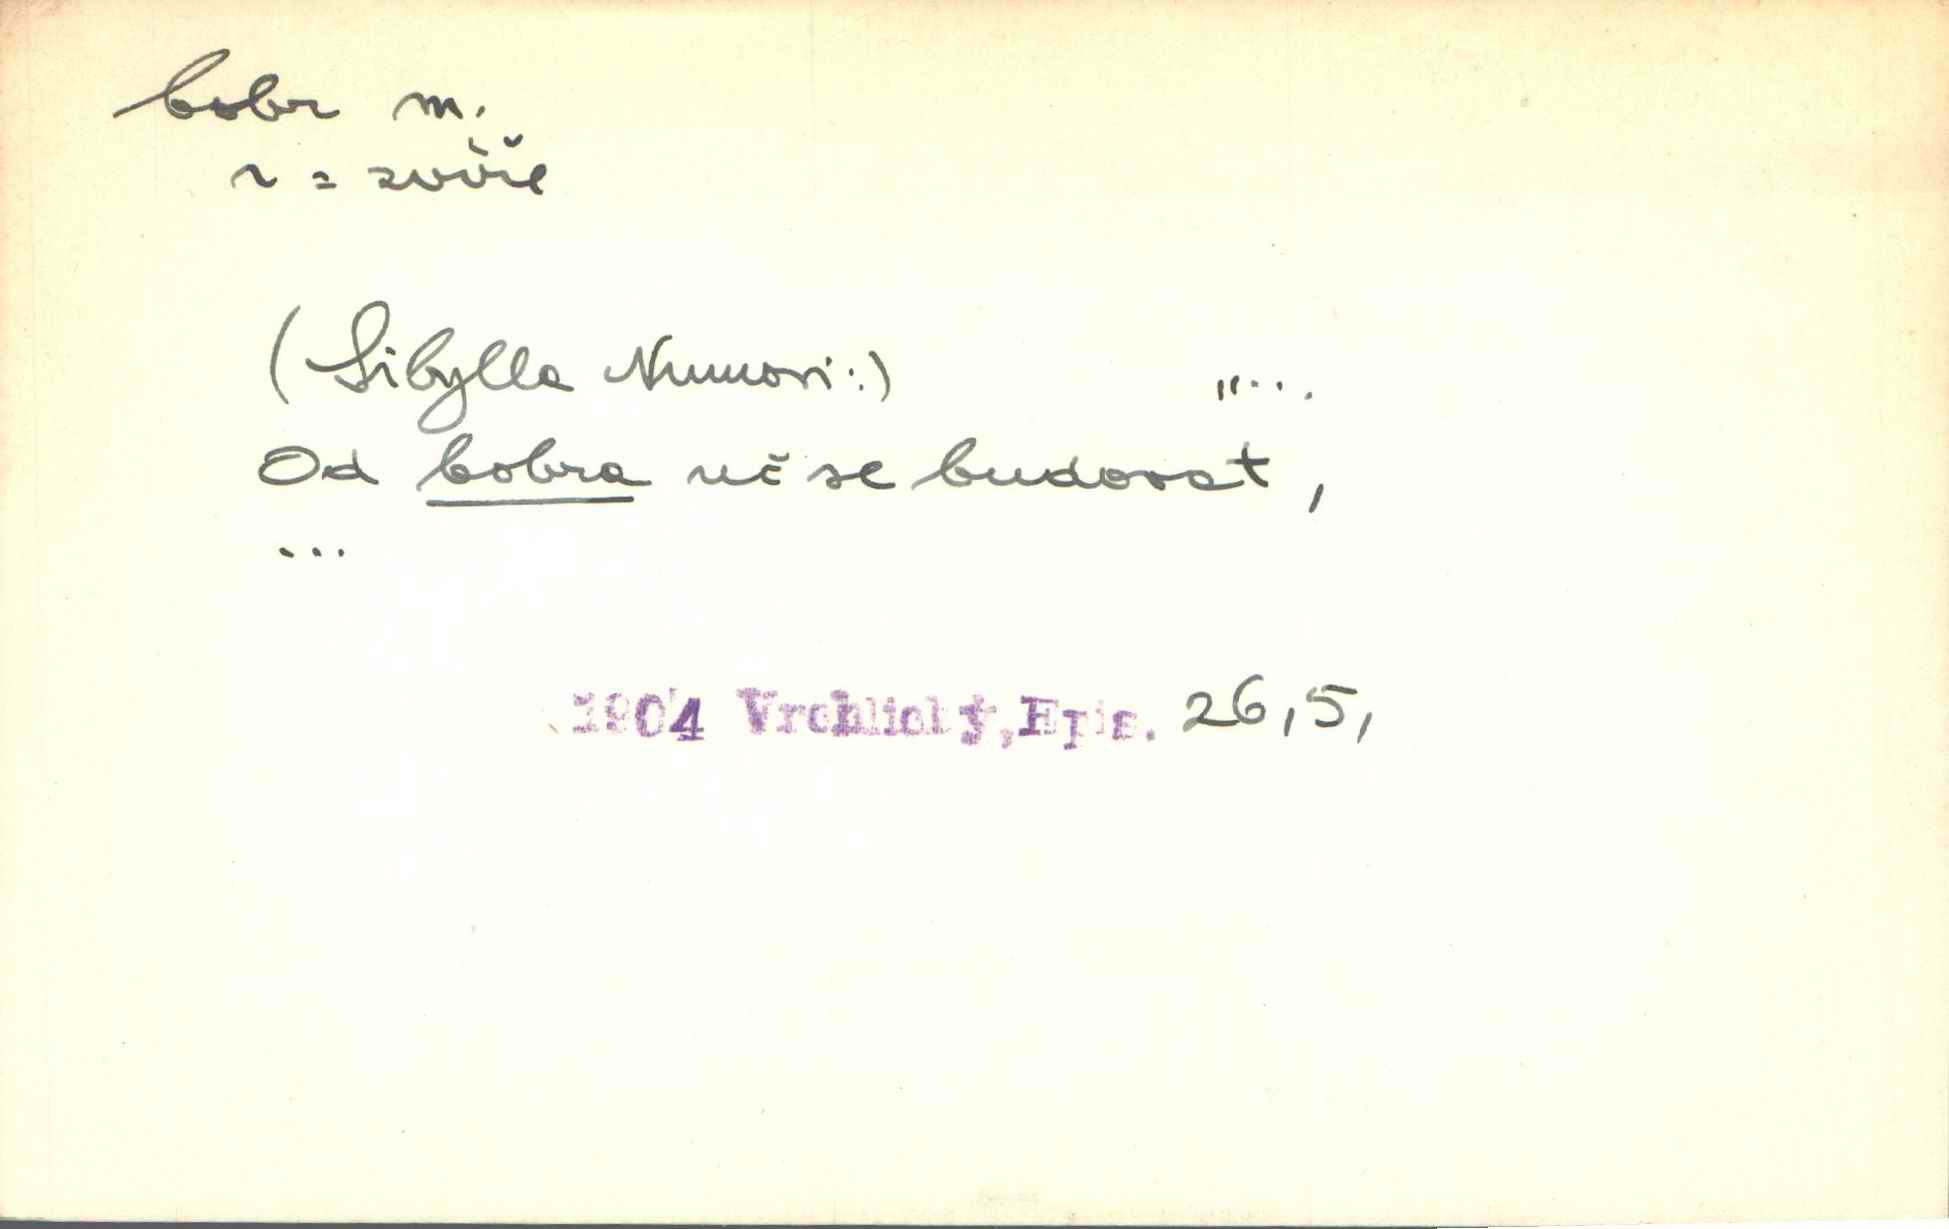 bobr m.
v = zvíře
(Sibylla Numovi:) „....
Od bobra uč se budovat,
...
1904 Vrchlický, Epis. 26,5,